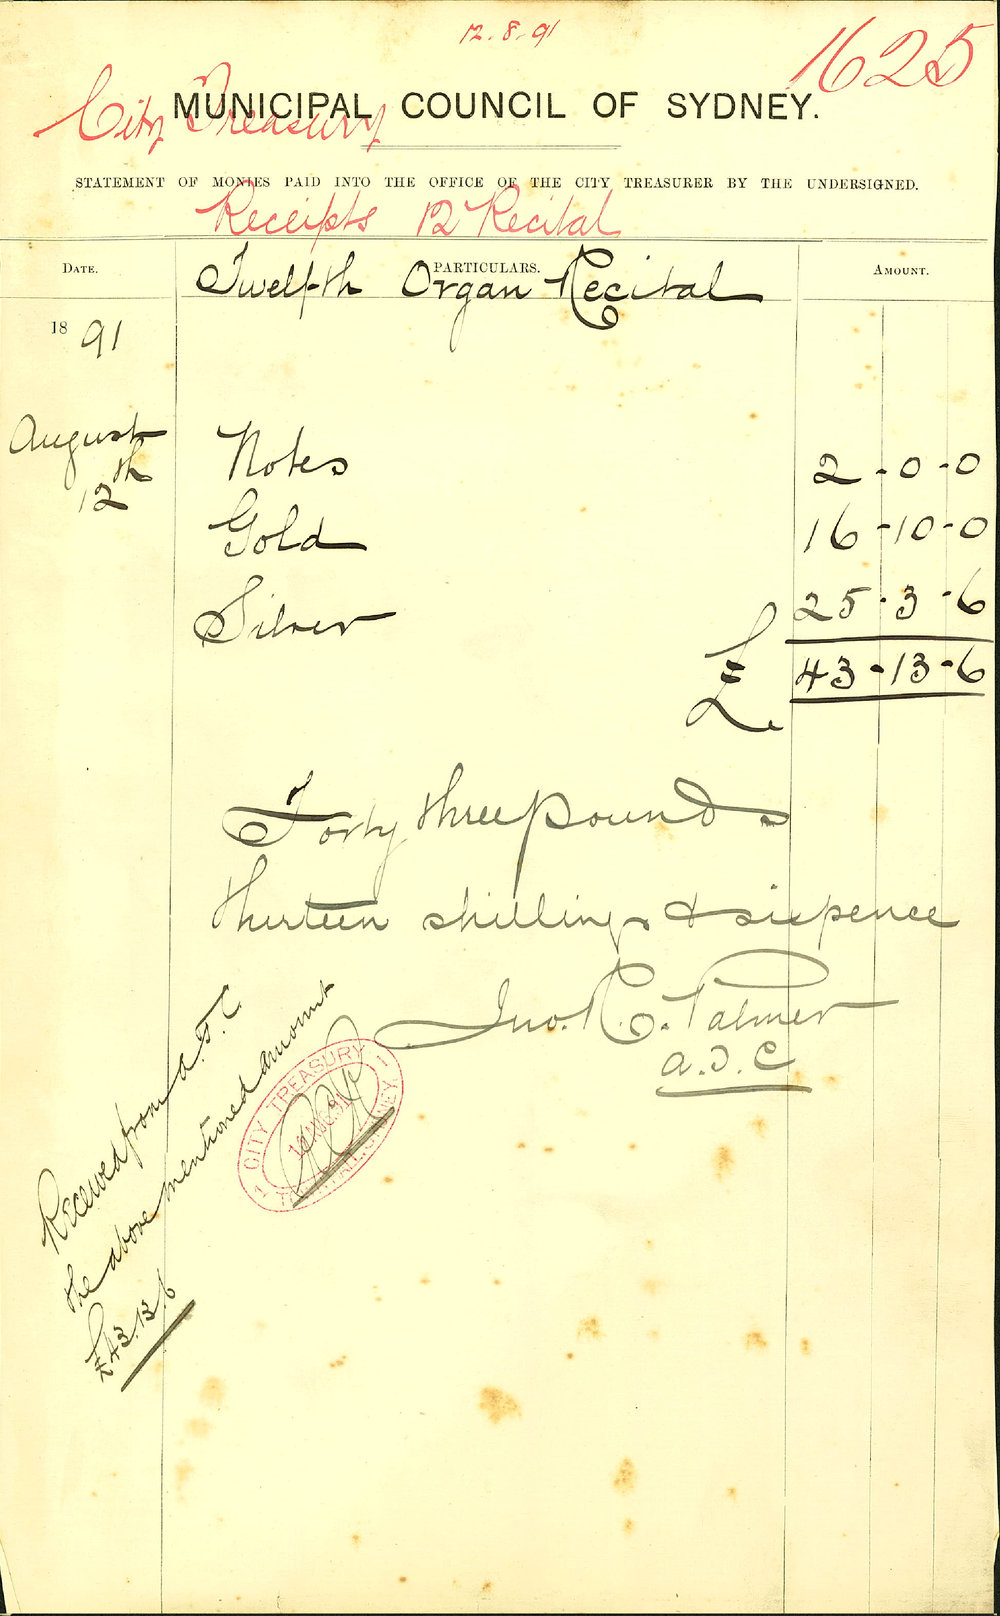 12.8.91
1625
City Treasury
MUNICIPAL COUNCIL OF SYDNEY.
STATEMENT OF MONIES PAID INTO THE OFFICE OF THE CITY TREASURER BY THE UNDERSIGNED.
Receipts 12 Recital
DATE. PARTICULARS. AMOUNT.
Twelfth Organ Recital
18 91
August 12th
Notes 2-0-0
Gold 16-10-0
Silver 25-3-6
£ 43-13-6
Forty three pounds
thirteen shillings & sixpence
Jno. R. C. Palmer
A.T.C
Received from A.T.C
the above mentioned amount
£43.13/6
CITY TREASURY
SYDNEY